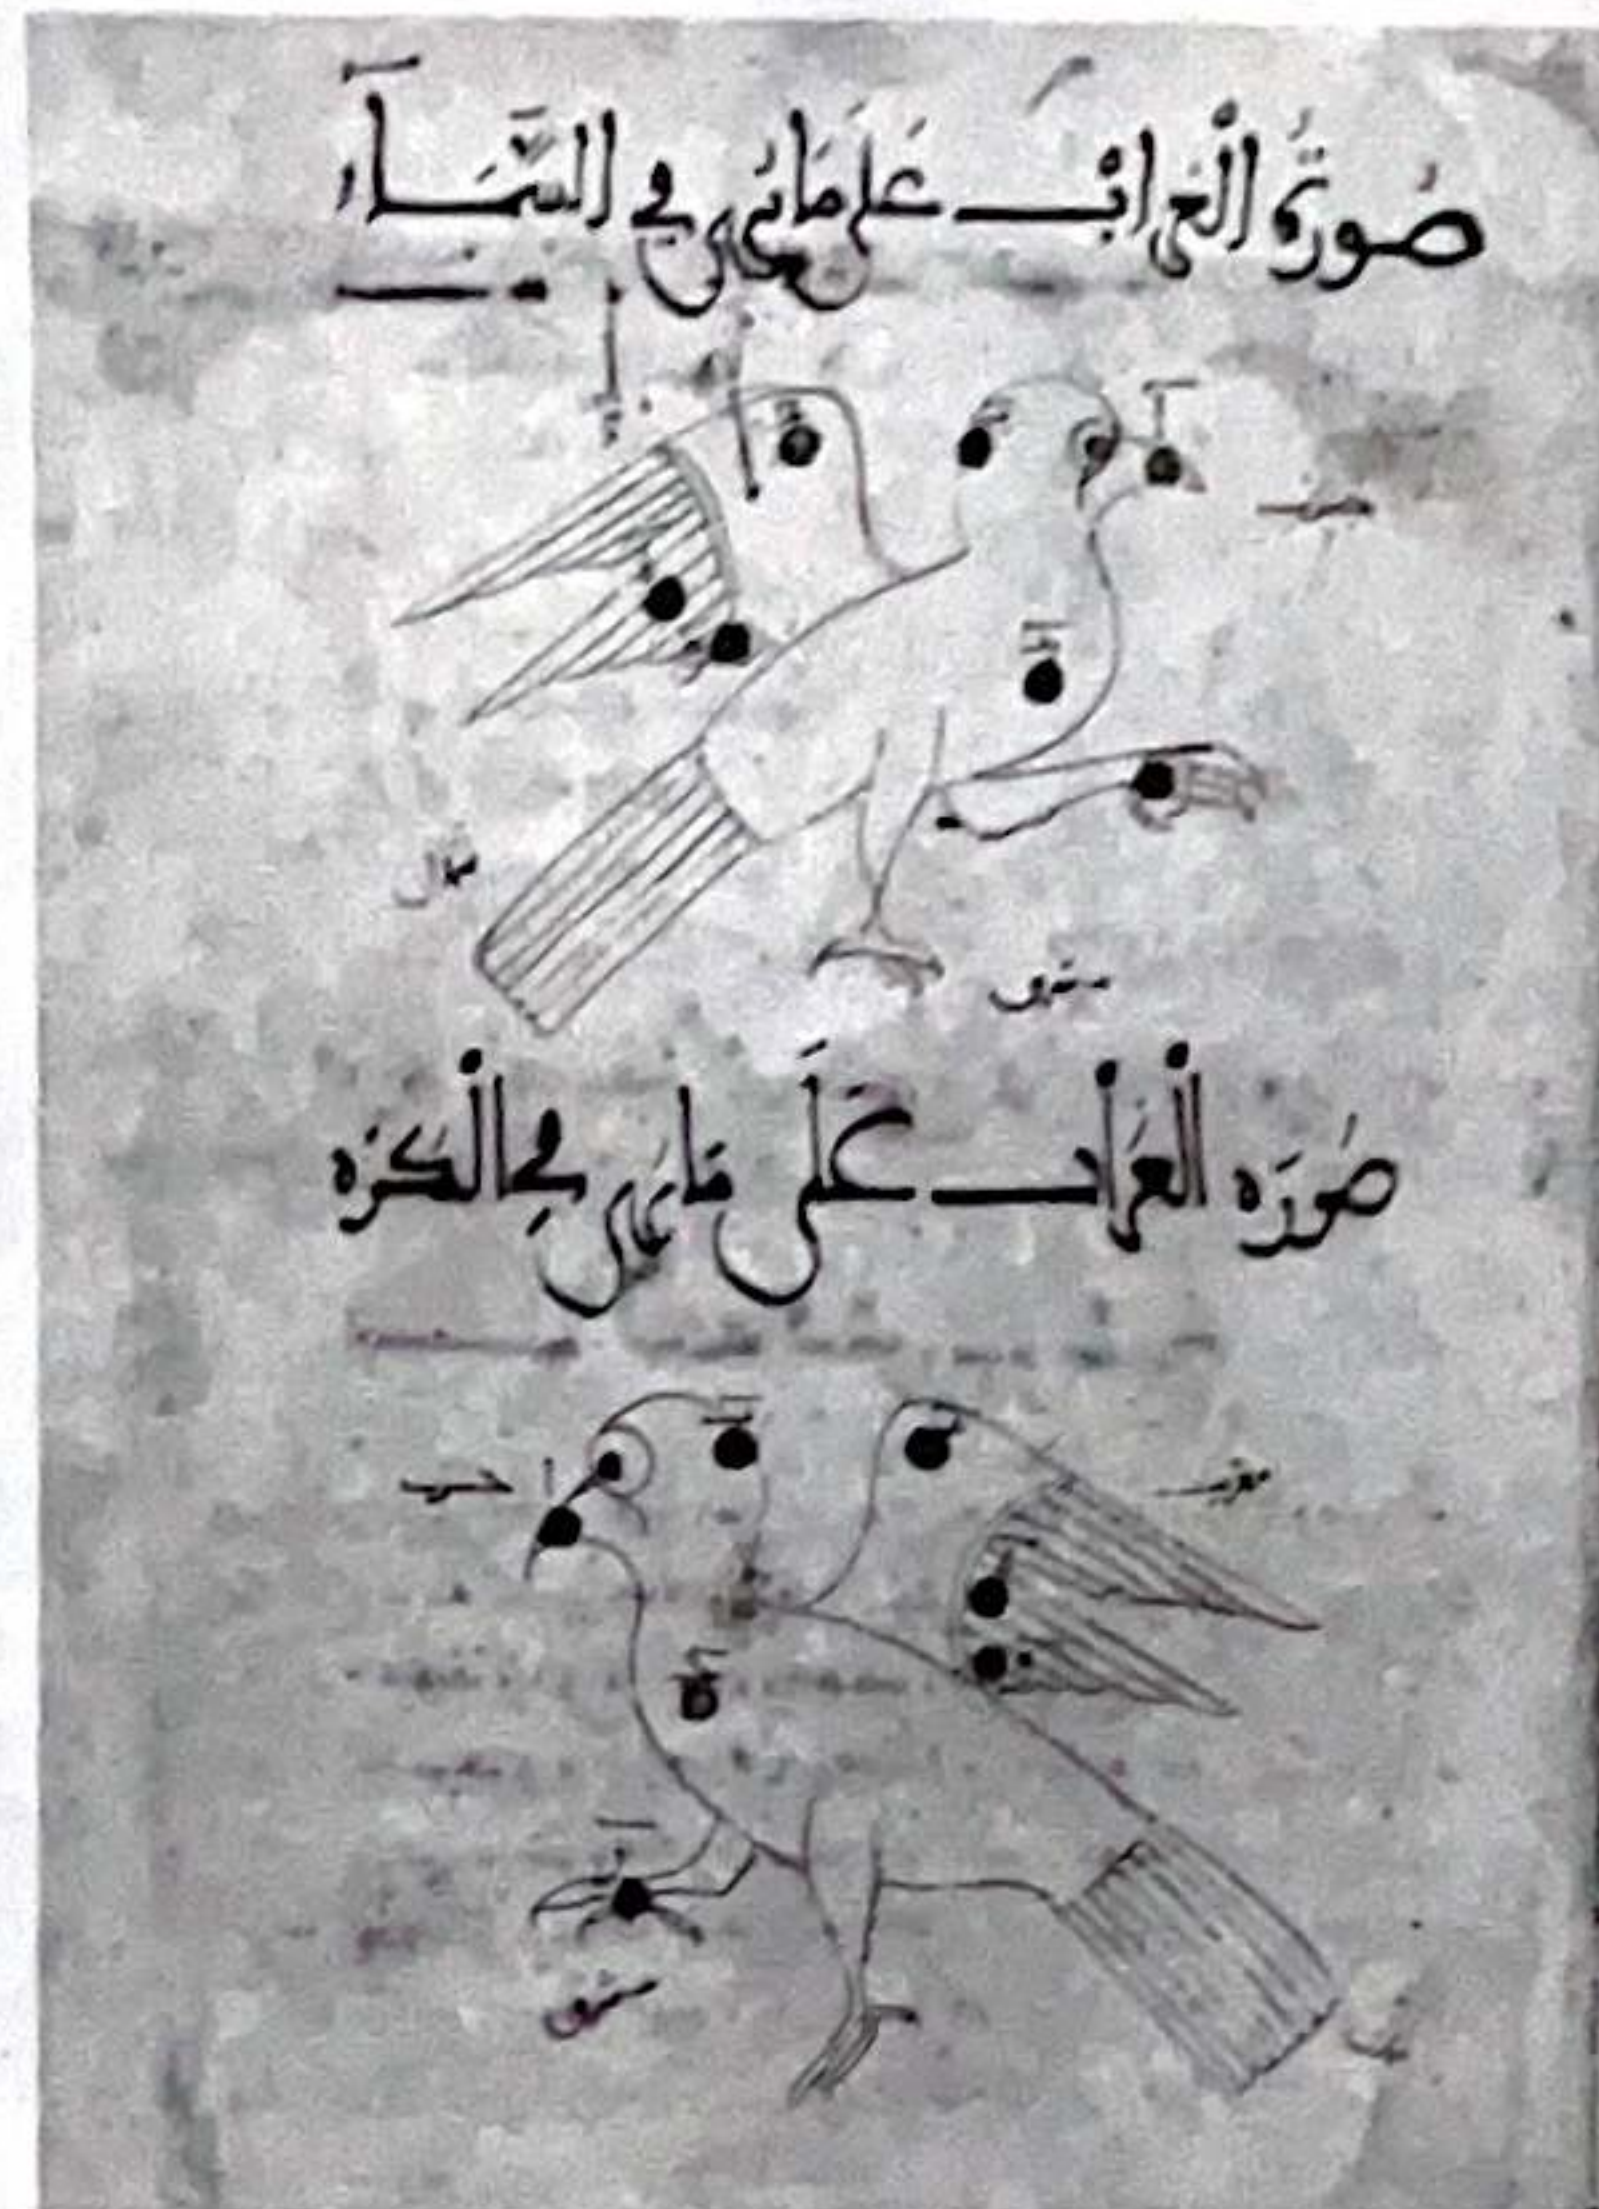 صُورَةُ الْغُرَابْ عَلَى مَا يُرَى فِي السَّمَآءِ
جنوب
شمال
مشرق
صُورَه الْغُرَاب عَلَى مَا يُرَى فِي الْكُرَه
جنوب
مغرب
مشرق